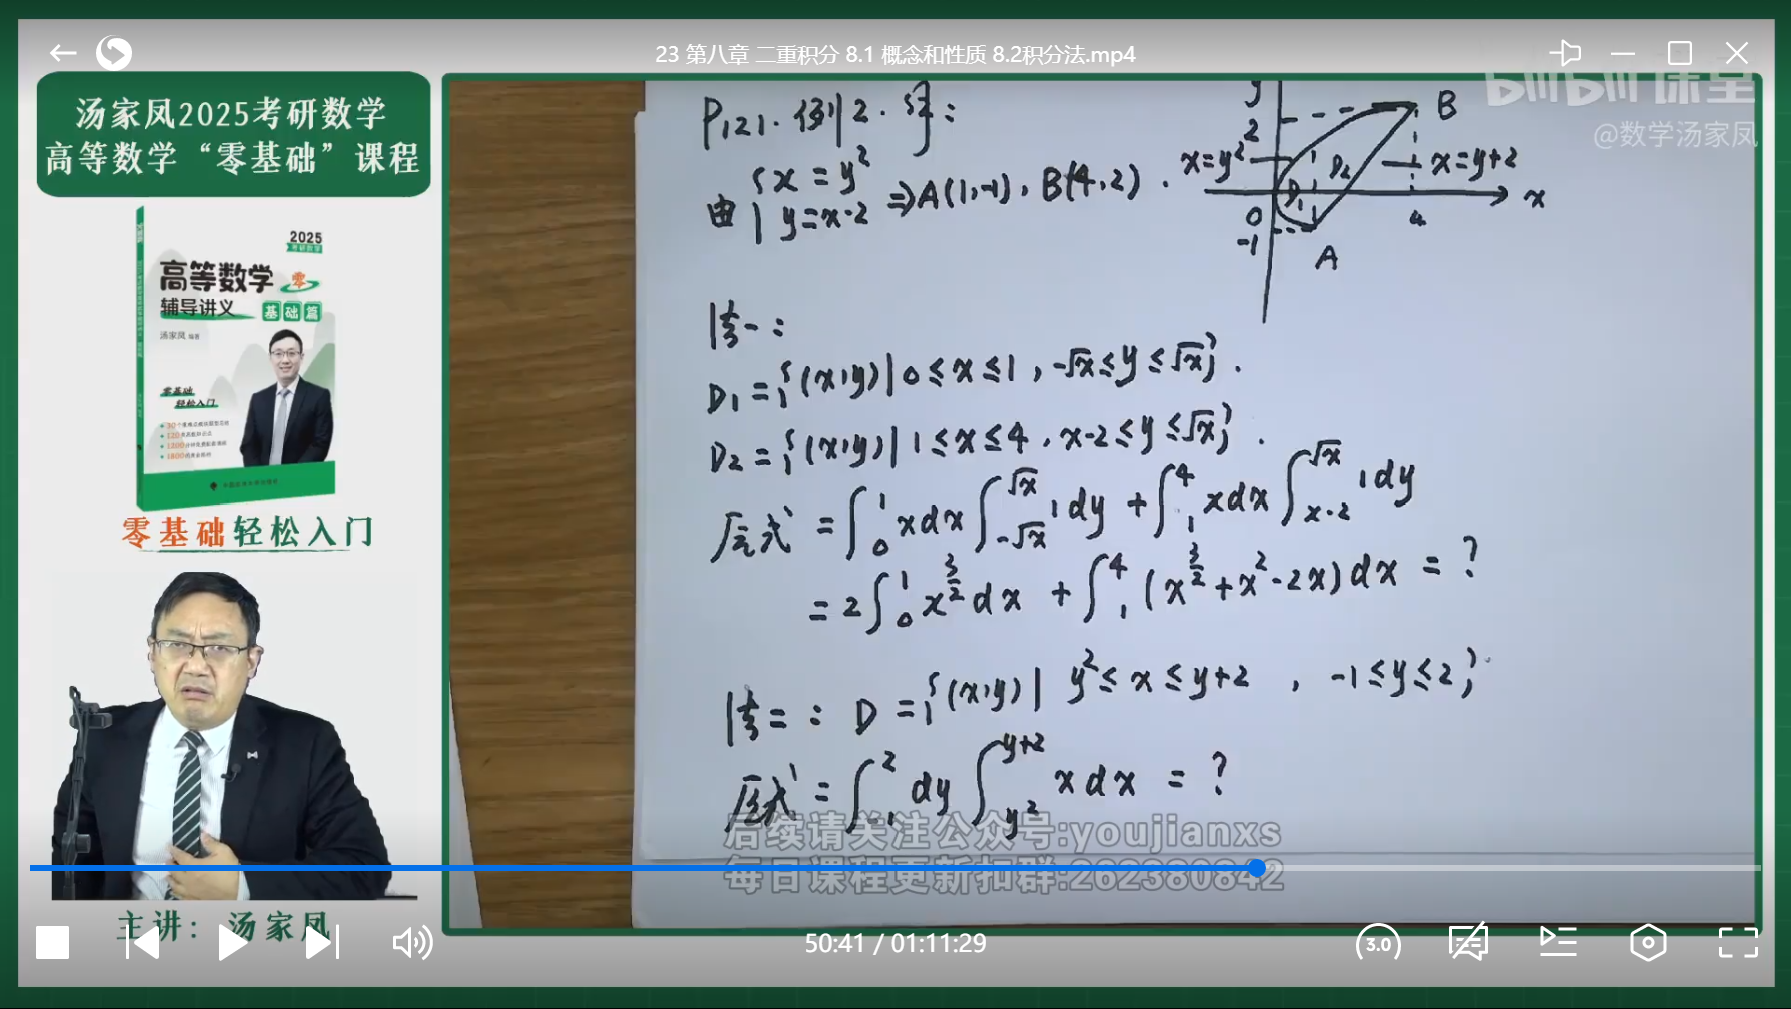 23 第八章 二重积分 8.1 概念和性质 8.2积分法.mp4
bilibili 课堂
@数学汤家凤
汤家凤2025考研数学
高等数学“零基础”课程
2025
高等数学 零
辅导讲义 基础篇
汤家凤 编著
零基础
轻松入门
零基础轻松入门
主讲：汤家凤
P121. 例2. 解：
由 { x = y²
y = x-2 ⇒ A(1,-1), B(4,2).
y
2
B
x=y²
D2
x=y+2
D1
x
0
4
-1
A
法一：
D1 = {(x,y) | 0 ≤ x ≤ 1, -√x ≤ y ≤ √x}.
D2 = {(x,y) | 1 ≤ x ≤ 4, x-2 ≤ y ≤ √x}.
原式 = ∫₀¹ xdx ∫_{-√x}^{√x} 1dy + ∫₁⁴ xdx ∫_{x-2}^{√x} 1dy
= 2∫₀¹ x^{3/2} dx + ∫₁⁴ (x^{3/2} + x² - 2x) dx = ?
法二： D = {(x,y) | y² ≤ x ≤ y+2, -1 ≤ y ≤ 2}
原式 = ∫_{-1}^{2} dy ∫_{y²}^{y+2} x dx = ?
后续请关注公众号:youjianxs
每日课程更新扣群:262380842
50:41 / 01:11:29
3.0